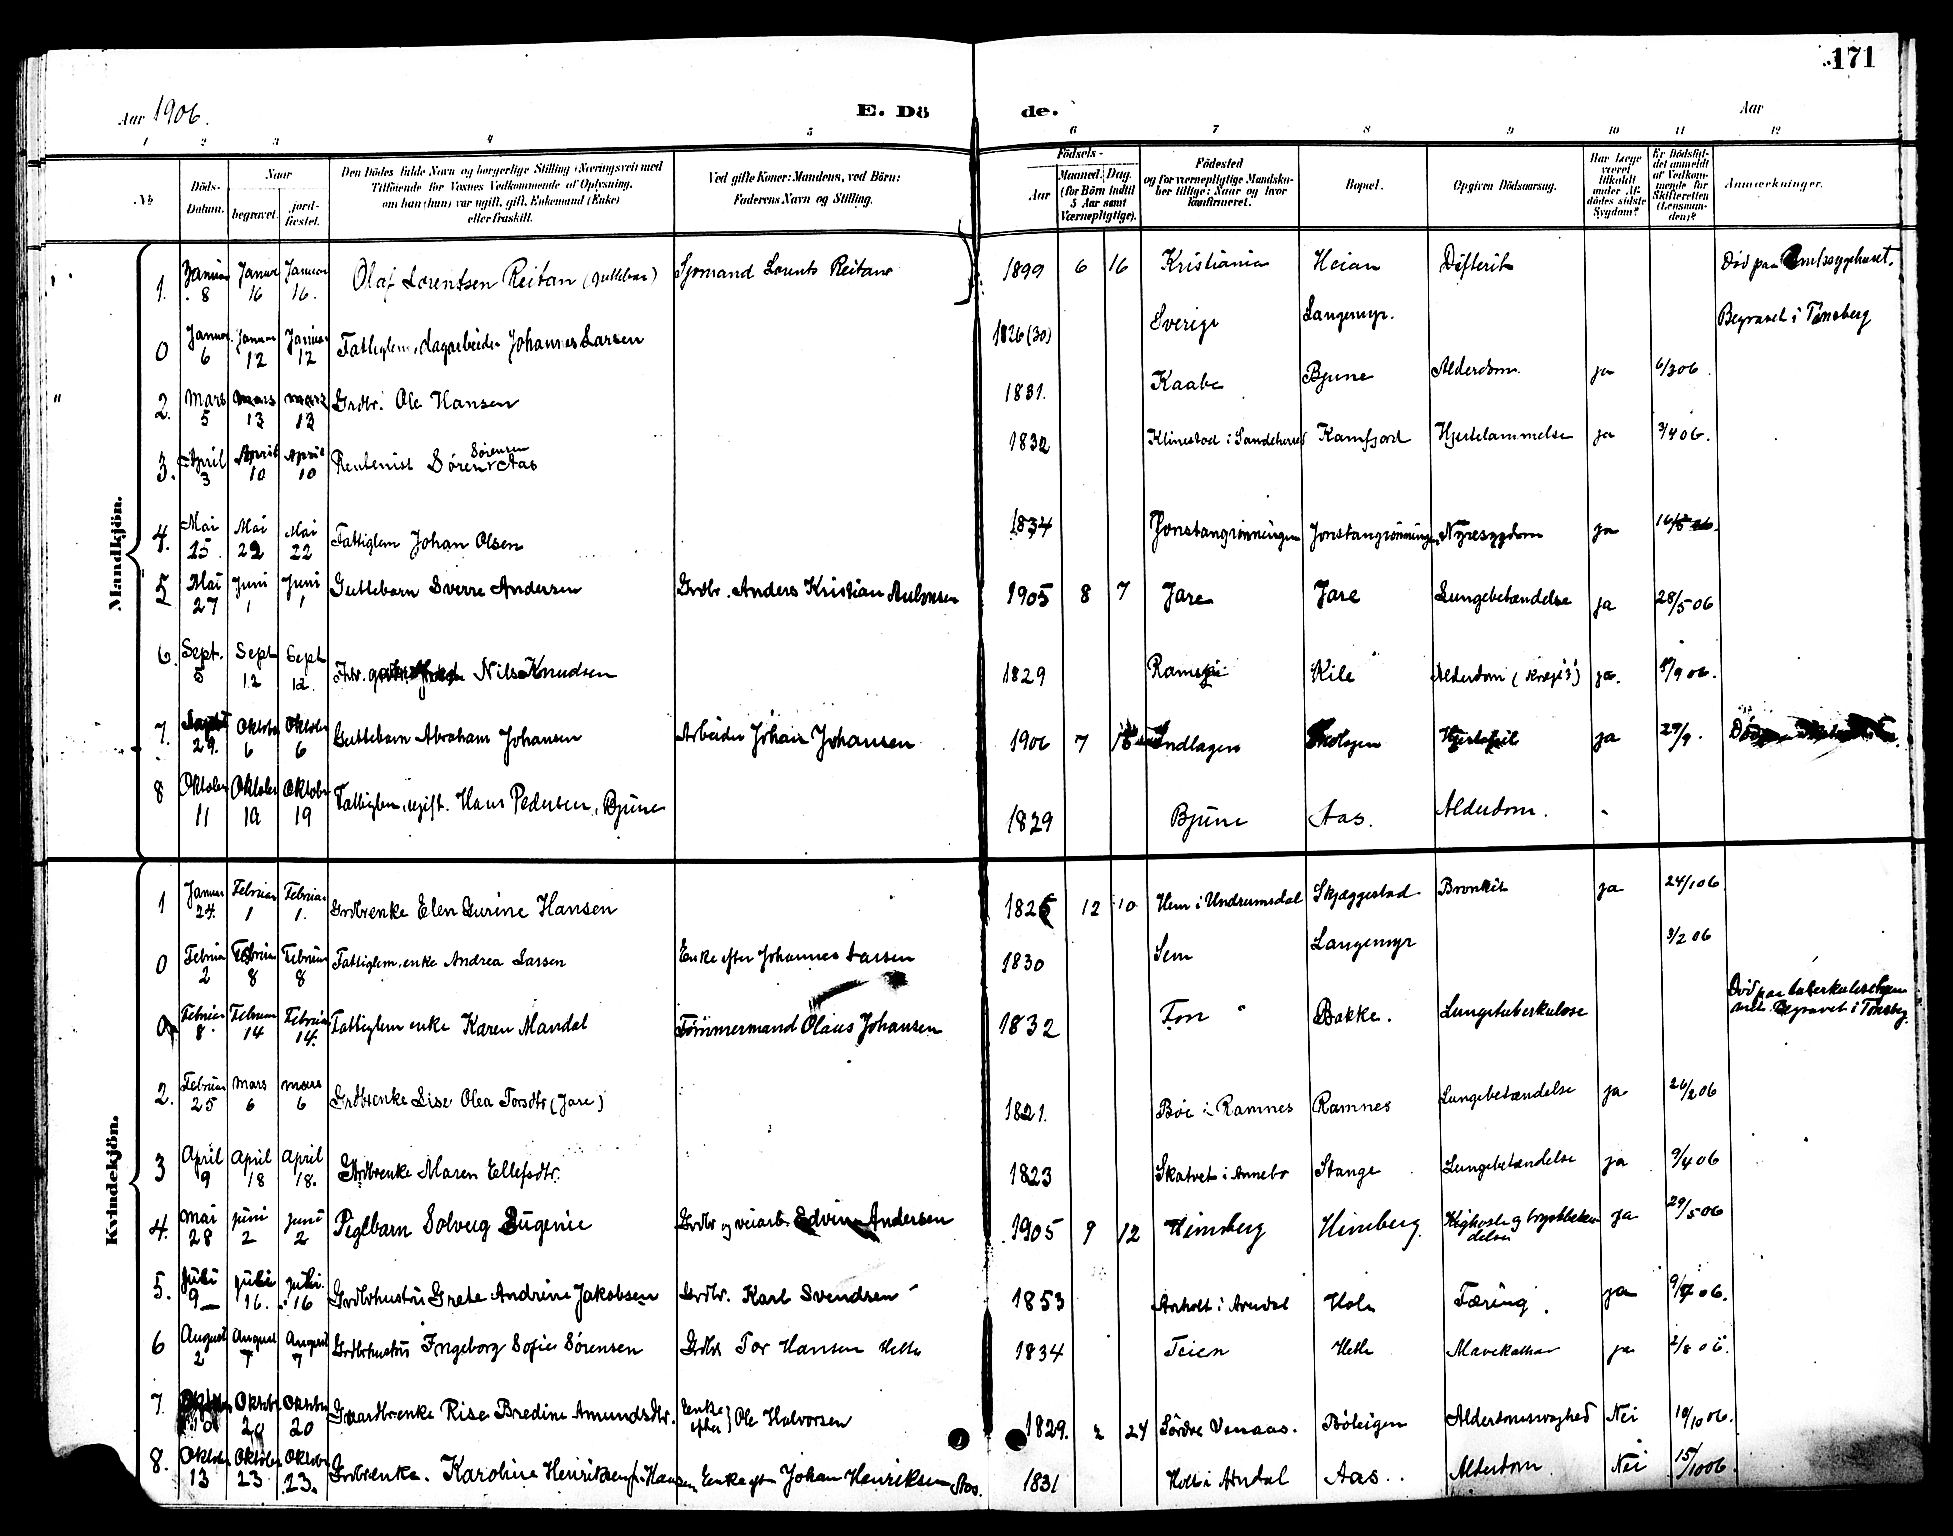 171
Aar 1906.
E. Dö de.
Aar
1 2 3 4 5 6 7 8 9 10 11 12
No
Döds-Datum.
Naar
begravet.
jord-fæstet.
Den Dödes fulde Navn og borgerlige Stilling (Næringsvei) med
Tilföiende for Voxnes Vedkommende af Oplysning,
om han (hun) var ugift, gift, Enkemand (Enke)
eller fraskilt.
Ved gifte Koner: Mandens, ved Börn:
Faderens Navn og Stilling.
Födsels-
Aar
Maaned. Dag.
(for Börn indtil
5 Aar samt
Værnepligtige).
Födested
og for værnepligtige Mandskaber tillige: Naar og hvor
konfirmeret.
Bopæl.
Opgiven Dödsaarsag.
Har Læge
været
tilkaldt
under Afdödes sidste
Sygdom?
Er Dödsfaldet anmeldt
af Vedkommende for
Skifteretten
(Lensmanden)?
Anmærkninger.
Mandkjön.
1. Januar 8 Januar 16 Januar 16. Olaf Lorentsen Reitan Sjømand Lorents Reitan 1899 6 16 Kristiania Heian Difterit Død paa Amtssygehuset.
0 Januar 6 Januar 12 Januar 12 Fattiglem, dagarbeider Johannes Larsen 1826 (30) Sverige Langemyr. Begravet i Tønsberg
2. Mars 5 Mars 13 Mars 13 Grdbr. Ole Hansen 1831. Kaabe Bjune Alderdom. ja 6/3 06.
3. April 3 April 10 April 10 Rentenist Søren Sørensen Aas 1832 Klinestad i Sandeherred Kamfjord Hjertelammelse ja 3/4 06.
4. Mai 15. Mai 22 Mai 22 Fattiglem Johan Olsen 1834 Jonstangrønningen Jonstangrønningen Nyresygdom ja 16/5 06.
5 Mai 27 Juni 1 Juni 1 Guttebarn Sverre Andersen Grdbr. Anders Kristian 1905 8 7 Jare Jare Lungebetændelse ja 28/5 06
6. Sept. 5 Sept 12 Sept 12. Nils Knudsen 1829 Kile Alderdom ja. /9 06.
7. 29. Oktober 6 Oktober 6 Guttebarn Abraham Johansen Arbeider Johan Johansen 1906 7 Indlagen Hjertefeil ja 29/9.
8 Oktober 11 Oktober 19 Oktober 19 Fattiglem, ugift. Hans Pedersen, Bjune 1829 Bjune Aas. Alderdom. -
Kvindekjön.
1 Januar 24. Februar 1 Februar 1. Grdbrenke Elen Gurine Hansen 1825 12 10 Hem i Undrumsdal Skjæggestad Bronkit ja 24/1 06
0 Februar 2 Februar 8 Februar 8 Fattiglem, enke Andrea Larsen Enke efter Johannes Larsen 1830 Sem Langemyr 3/2 06
0 Februar 8. Februar 14 Februar 14. Fattiglem enke Karen Mandal Tømmermand Olaus Johansen 1832 Fon Bakke. Lungetuberkulose Død paa tuberkulosehjem Begravet i Tønsbg.
2. Februar 25 Mars 6 Mars 6 Grdbrenke Lise Olea Torsdtr (Jare) 1821. Bøe i Ramnes Ramnes Lungebetændelse ja 26/2 06
3 April 9 April 18 April 18. Grdbrenke Maren Ellefsdtr. 1823 Skatvet i Annebo Stange Lungebetændelse ja 9/4 06
4. Mai 28 Juni 2 Juni 2 Pigebarn Solveig Eugenie Grdbr og veiarb. Edvin Andersen 1905 9 12 Himberg Himberg. Kighoste og brystbetændelse ja 29/5 06
5. Juli 9 Juli 16. Juli 16 Grdbrhustru Grete Andrine Jakobsen Grdbr. Karl Svendsen 1853 Arholt i Arndal Hole Tæring. ja 9/7 06.
6 August 2 August 7 August 7 Grdbrhustru Ingeborg Sofie Sørensen Grdbr Tor Hansen Helle 1834 Teien Helle Mavekatar ja 2/8 06.
7. 10 Oktober 20 Oktober 20 Gaardbrenke Rise Bredine Amundsdtr. Enke efter Ole Halvorsen 1829. 2 24 Søndre Venaas. Bøleigen Alderdomssvaghed Nei 10/10 06.
8. Oktober 13 Oktober 23 Oktober 23. Grdbrenke. Karoline Henriksen f. Hansen, Enke eft Johan Henriksen Aas. 1831 Holt i Arndal Aas.. Alderdom Nei 15/10 06.